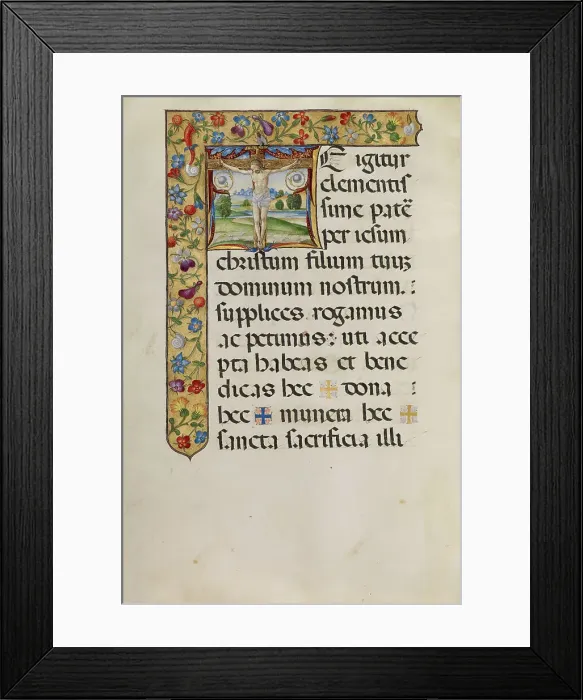 E igitur
clementis
sime patē
per iesum
christum filium tuuꝫ
dominum nostrum. :
supplices rogamus
ac petimus: uti acce
pta habeas et bene
dicas hec ✠ dona :
hec ✠ munera hec ✠
sancta sacrificia illi